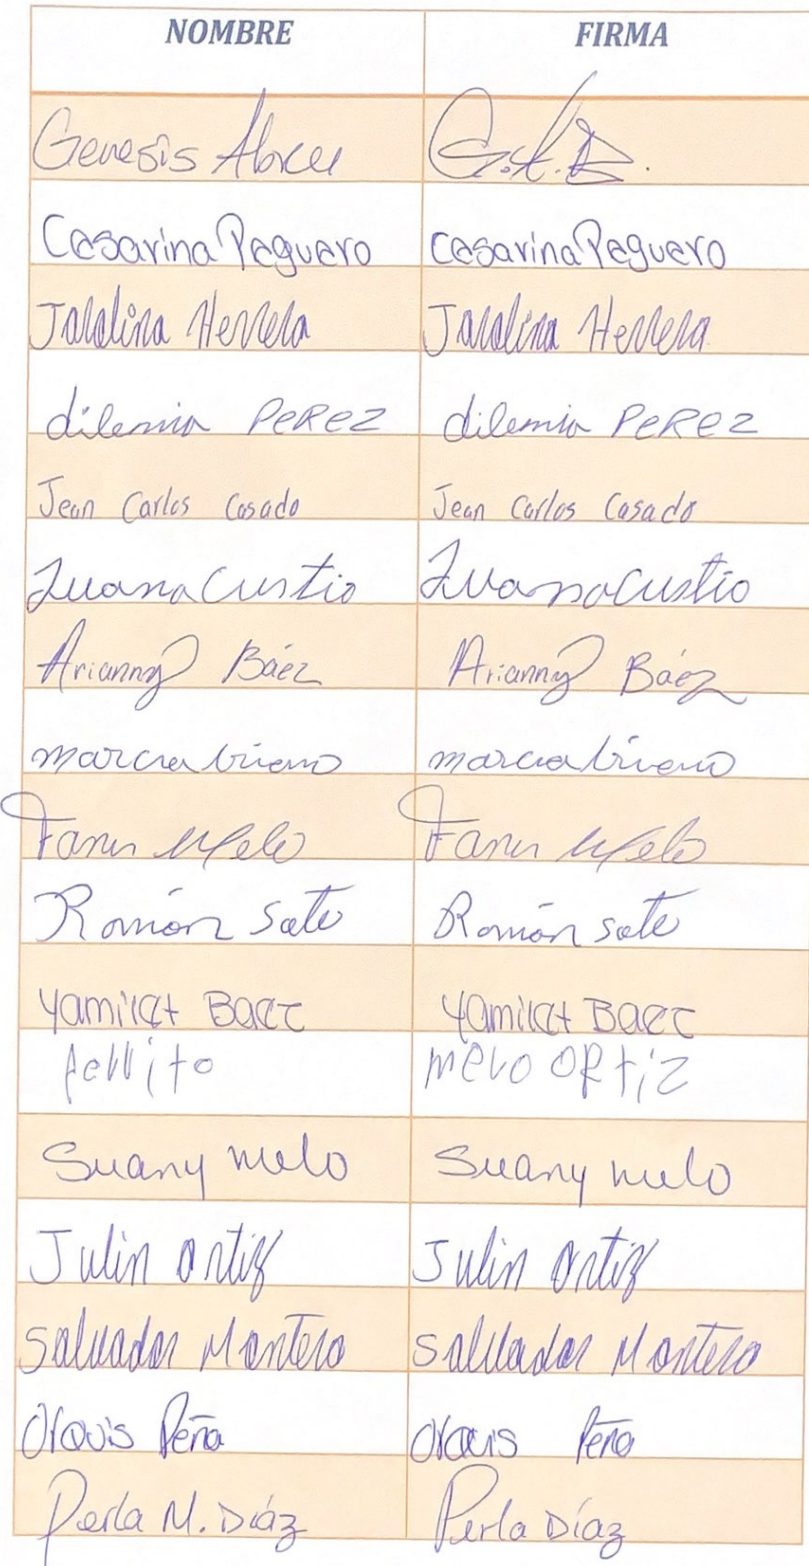 NOMBRE FIRMA
Genesis Abreu G.A.B.
Cesarina Peguero Cesarina Peguero
Herrera Herrera
dilemia PeRez dilemia PeRez
Jean Carlos Casado Jean Carlos Casado
Juana Custio Juana Custio
Arianny Báez Arianny Báez
marcia marcia
Melo Melo
Román Soto Román Soto
Yamilet Baez Yamilet Baez
Perrito melo ORtiz
Suany melo Suany melo
Julin Ortiz Julin Ortiz
Salvador Montero Salvador Montero
Peña Peña
Perla M. Díaz Perla Díaz